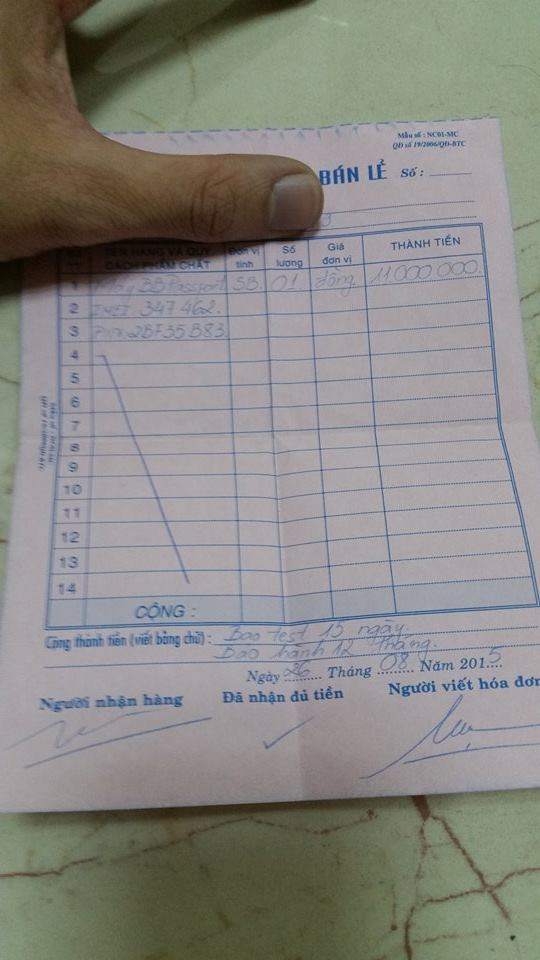 Mẫu số : NC01-MC
QĐ số 19/2006/QĐ-BTC
BÁN LẺ Số :
TÊN HÀNG VÀ QUY CÁCH PHẨM CHẤT Đơn vị tính Số lượng Giá đơn vị THÀNH TIỀN
1 Máy BB Passport SB 01 đồng 11 000 000.
2 IMEI 347 462.
3 PIN: 2BF35B83.
4
5
6
7
8
9
10
11
12
13
14
CỘNG :
Cộng thành tiền (viết bằng chữ) : Bao test 15 ngày.
Bảo hành 12 tháng.
Ngày 26 Tháng 08 Năm 2015
Người nhận hàng Đã nhận đủ tiền Người viết hóa đơn